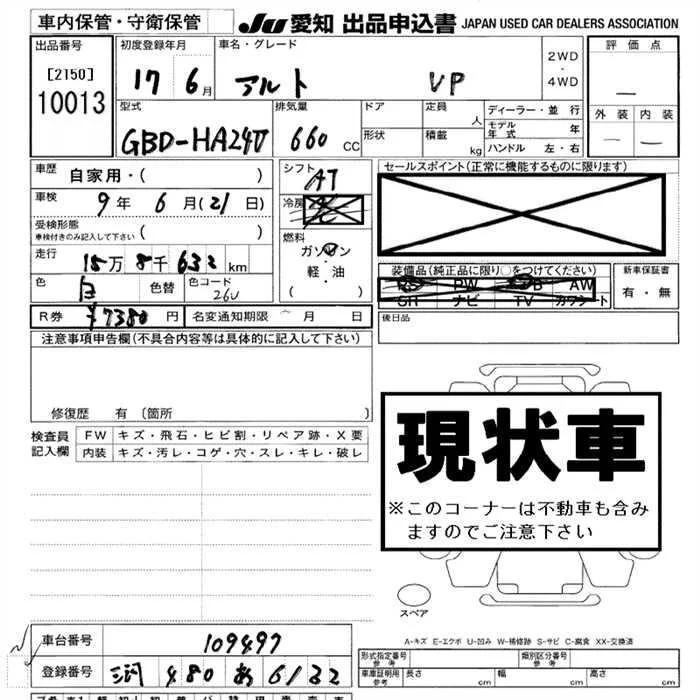 車内保管・守衛保管
JU 愛知 出品申込書 JAPAN USED CAR DEALERS ASSOCIATION
出品番号
[2150]
10013
初度登録年月
17 6月
車名・グレード
アルト VP
2WD
・
4WD
評価点
—
外装 内装
— —
型式
GBD-HA24V
排気量
660 CC
ドア
形状
定員 人
積載 kg
ディーラー・並行
モデル年式 年
ハンドル 左・右
車歴 自家用・( )
車検 9年 6月(21日)
受検形態
車検付きのみ記入して下さい ( )
走行 15万 8千 632 km
色 白 色替 色コード 26U
シフト AT
冷房
燃料
ガソリン
・
軽・油
( )
セールスポイント(正常に機能するものに限ります)
装備品(純正品に限り○をつけてください)
PS PW AB AW
SR ナビ TV カワシート
新車保証書
有・無
R券 ¥7380円 名変通知期限 月 日
後日品
注意事項申告欄(不具合内容等は具体的に記入して下さい)
修復歴 有 [箇所 ]
検査員記入欄
FW キズ・飛石・ヒビ割・リペア跡・X要
内装 キズ・汚レ・コゲ・穴・スレ・キレ・破レ
現状車
※このコーナーは不動車も含み
ますのでご注意下さい
スペア
A-キズ E-エクボ U-凹み W-補修跡 S-サビ C-腐食 XX-交換済
車台番号 109497
登録番号 三河 480 6122
形式指定番号
参考
類別区分番号
参考
車庫証明用
参考
長さ cm 幅 cm 高さ cm